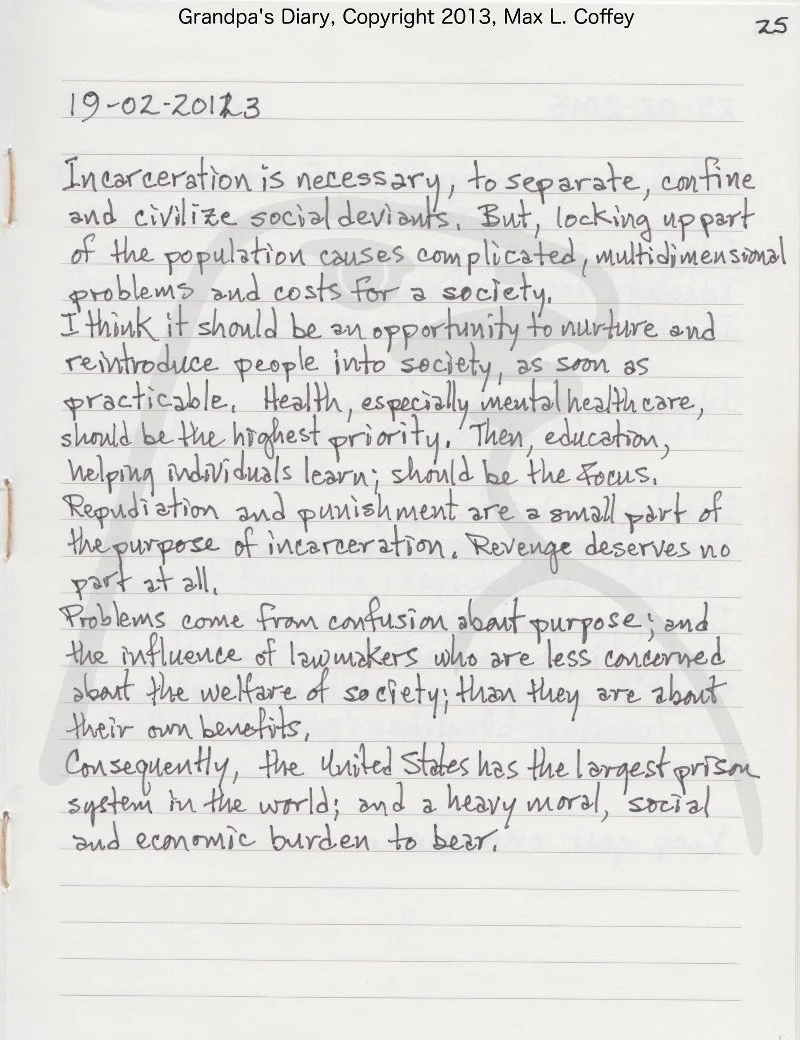 Grandpa's Diary, Copyright 2013, Max L. Coffey
25
19-02-20123
Incarceration is necessary, to separate, confine
and civilize social deviants. But, locking up part
of the population causes complicated, multidimensional
problems and costs for a society.
I think it should be an opportunity to nurture and
reintroduce people into society, as soon as
practicable. Health, especially mental health care,
should be the highest priority. Then, education,
helping individuals learn; should be the focus.
Repudiation and punishment are a small part of
the purpose of incarceration. Revenge deserves no
part at all.
Problems come from confusion about purpose; and
the influence of lawmakers who are less concerned
about the welfare of society; than they are about
their own benefits.
Consequently, the United States has the largest prison
system in the world; and a heavy moral, social
and economic burden to bear.